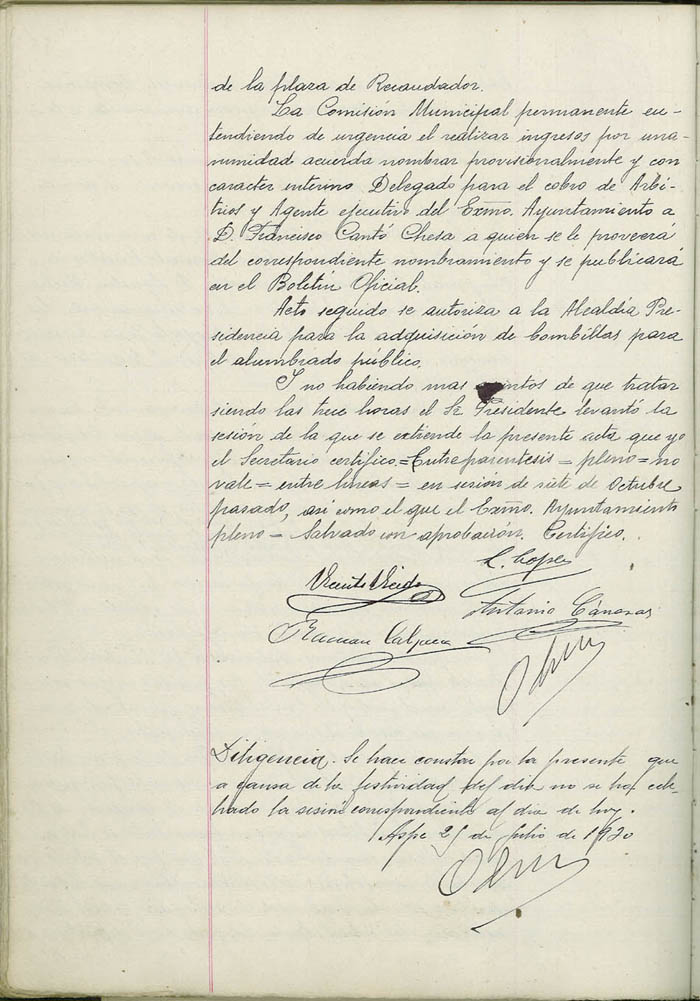 de la plaza de Recaudador.
La Comisión Municipal permanente en-
tendiendo de urgencia el realizar ingresos por una-
nimidad acuerda nombrar provisionalmente y con
caracter interino Delegado para el cobro de Arbi-
trios y Agente ejecutivo del Exmo. Ayuntamiento a
D. Francisco Cantó Chesa a quien se le proveerá
del correspondiente nombramiento y se publicará
en el Boletín Oficial.
Acto seguido se autoriza a la Alcaldía Pre-
sidencia para la adquisición de bombillas para
el alumbrado público.
I no habiendo mas asuntos de que tratar
siendo las trece horas el Sr. Presidente levantó la
sesión de la que se extiende la presente acta que yo
el Secretario certifico.=Entre parentesis = pleno = no
vale = entre lineas = en sesión de siete de Octubre
pasado, asi como el que el Exmo. Ayuntamiento
pleno = Salvado con aprobación. Certifico.
Vicente
Antonio Cánovas
Ramon
Diligencia. Se hace constar por la presente que
a causa de la festividad del dia no se ha cele-
brado la sesion correspondiente al dia de hoy.
Aspe 25 de Julio de